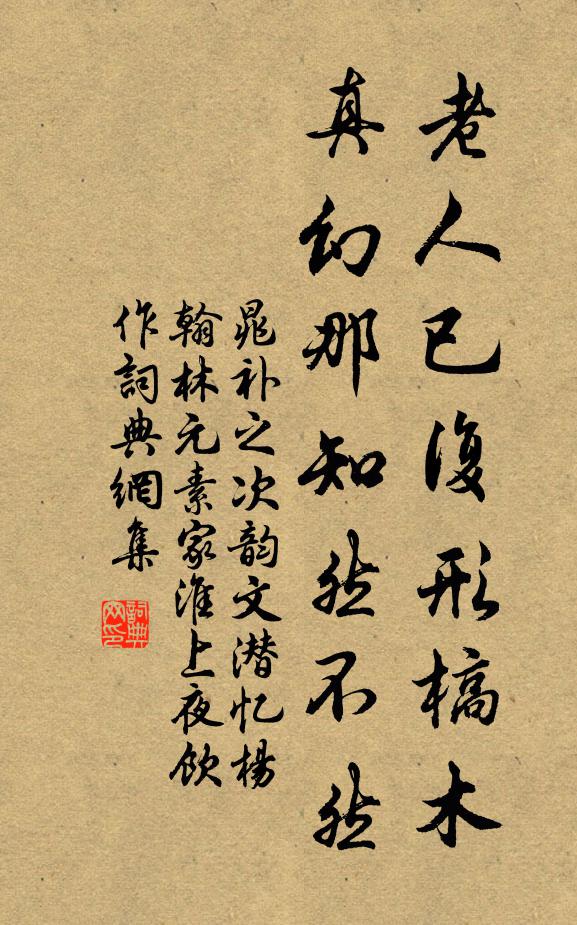 老人已復形槁木
真幻那知然不然
晁补之次韵文潜忆杨
翰林元素家淮上夜饮
作詞典網集
詞典
网印